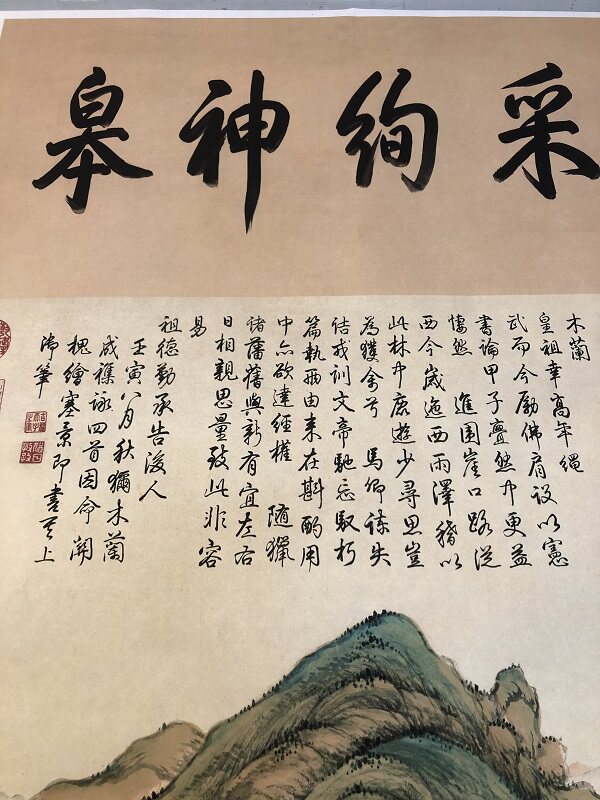 采絢神皋
木蘭
皇祖幸高年繩
武而今勵佛肩設以憲
書論甲子寔然中更益
悽然 進圍崖口路從
西今歲迤西雨澤稽以
此林中鹿遊少尋思豈
為獲禽兮 馬卿諫失
詰我訓文帝馳忘馭朽
篇執兩由來在斟酌用
中亦欲達經權 隨獵
諸藩舊與新有宜左右
日相親思量致此非容
易
祖德勤承告後人
壬寅八月秋獮木蘭
成雜詠四首因命
槐繪塞景即書其上
御筆